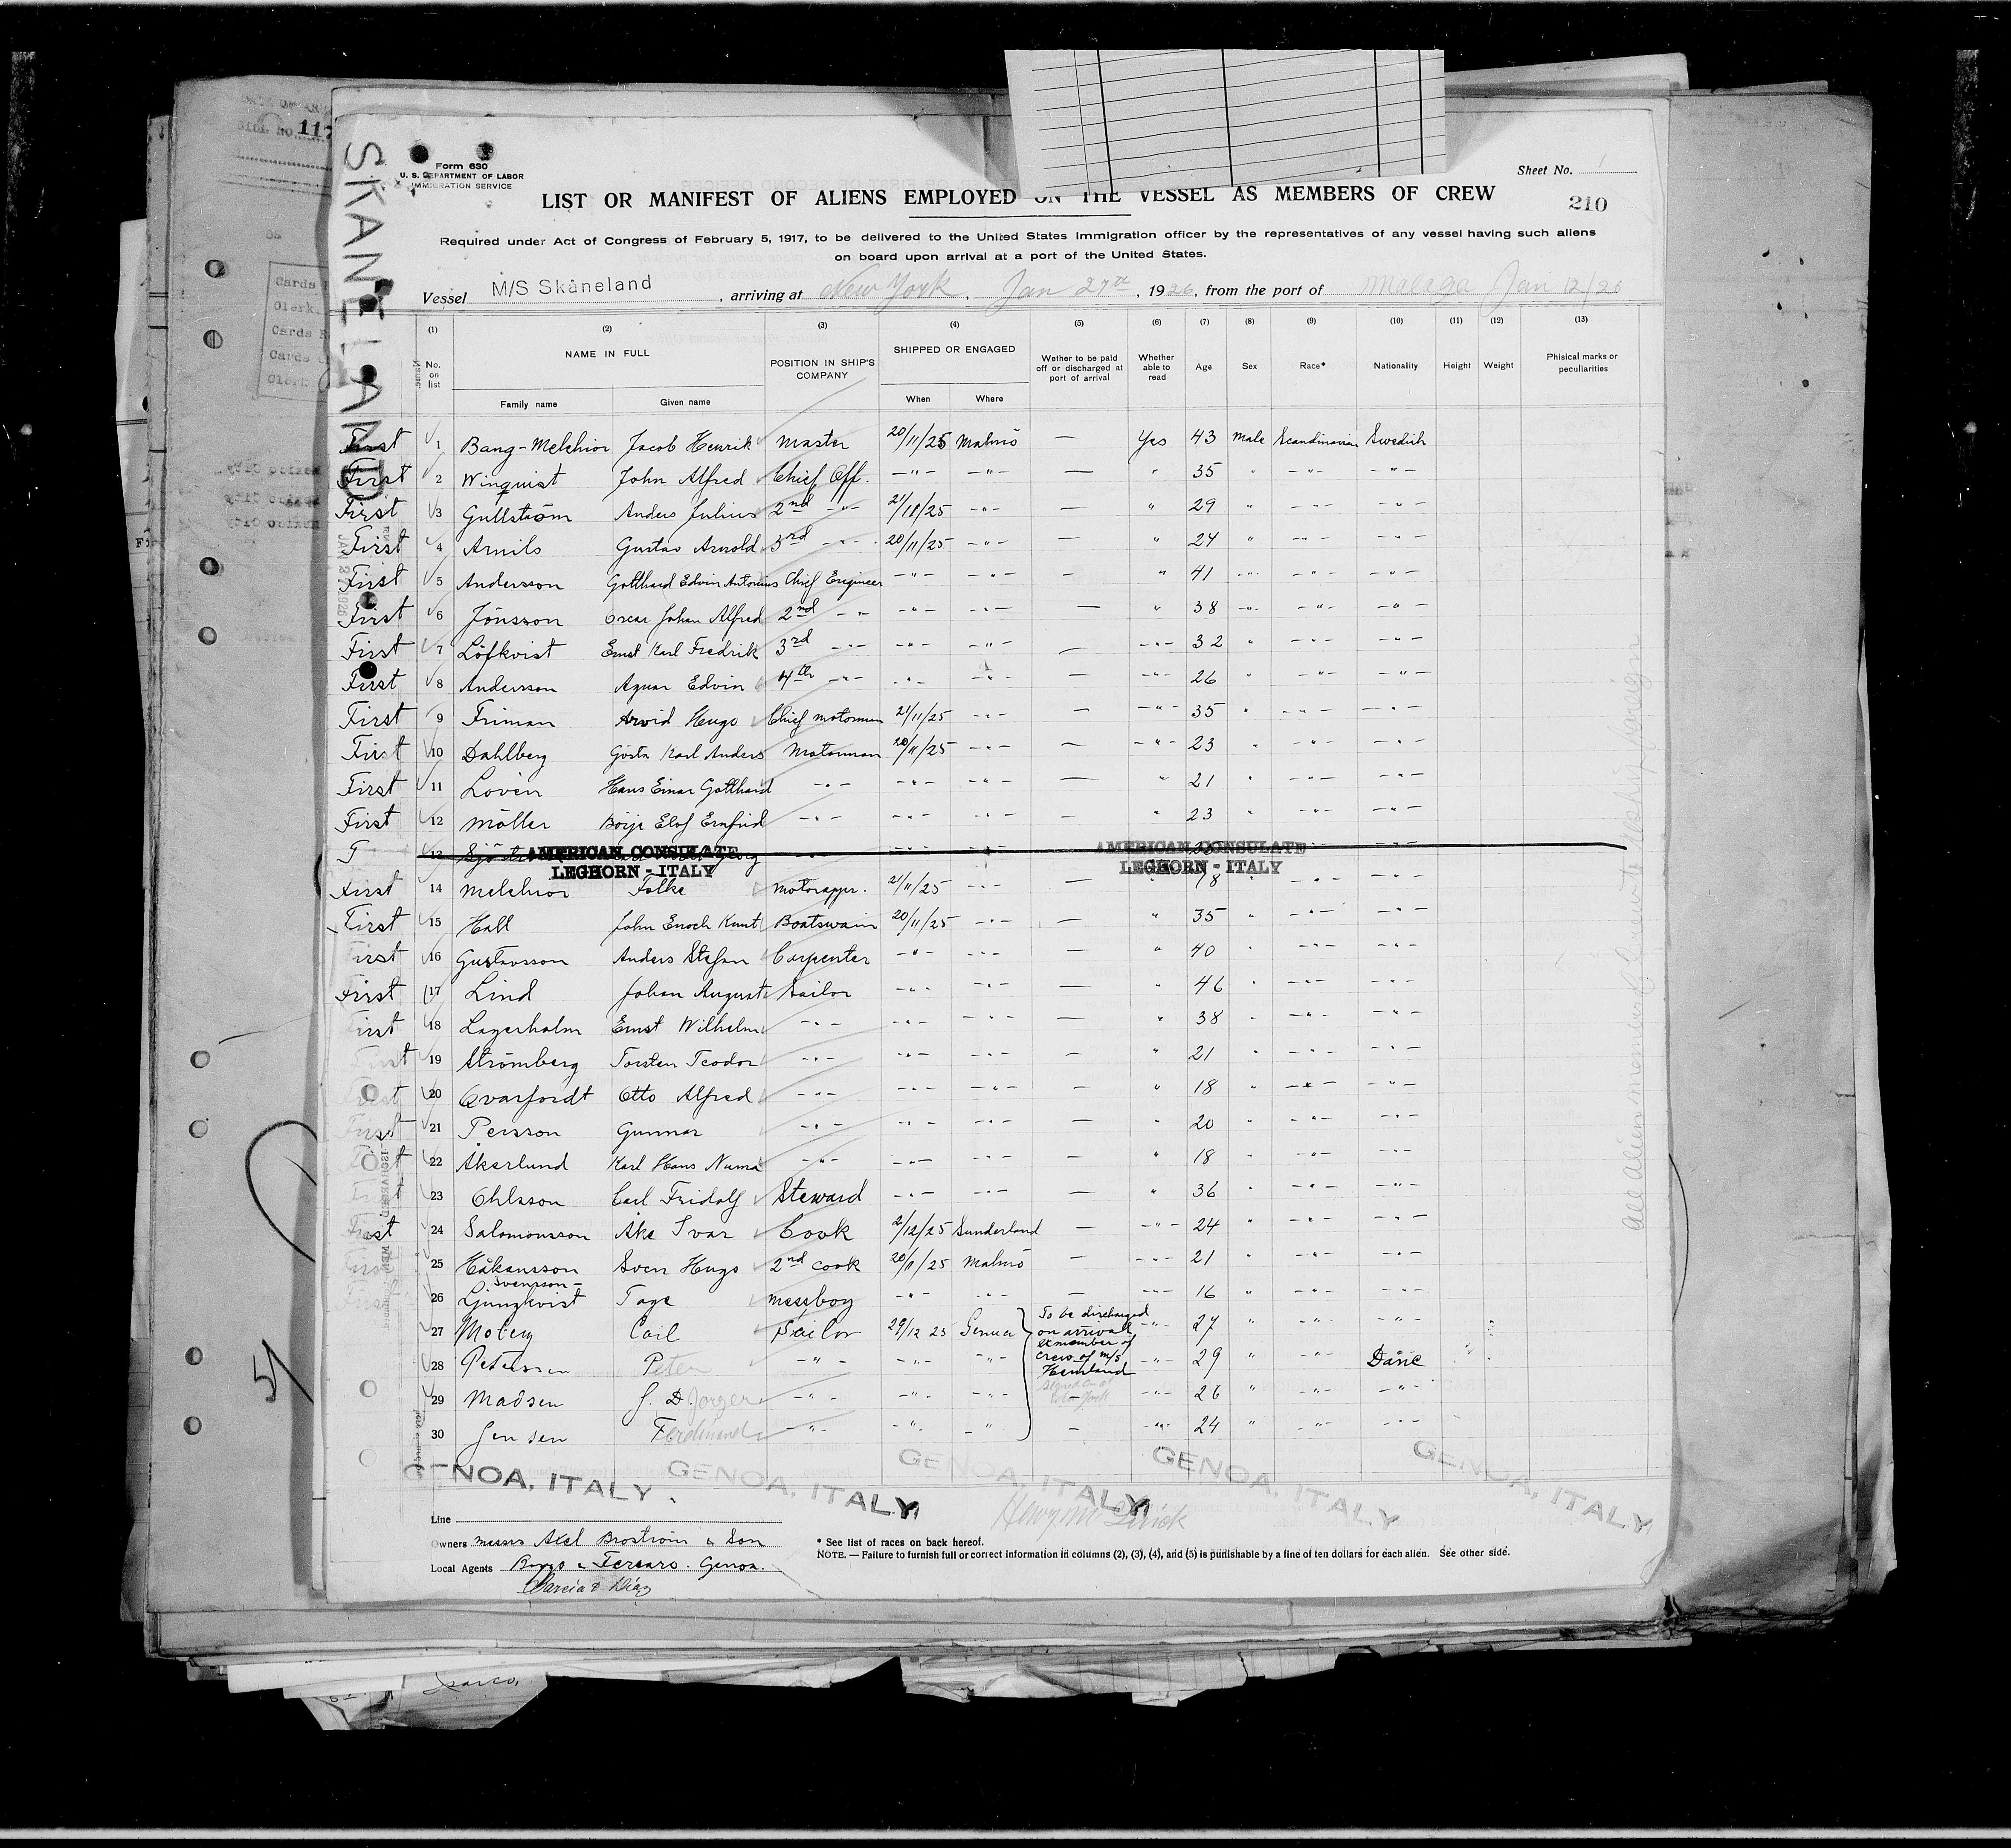 117
SKANELAND
Form 630
U. S. DEPARTMENT OF LABOR
IMMIGRATION SERVICE
Sheet No. 1
LIST OR MANIFEST OF ALIENS EMPLOYED ON THE VESSEL AS MEMBERS OF CREW
210
Required under Act of Congress of February 5, 1917, to be delivered to the United States immigration officer by the representatives of any vessel having such aliens
on board upon arrival at a port of the United States.
Vessel M/S Skåneland, arriving at New York, Jan 27th, 1926, from the port of Malaga Jan 12/26
(1) (2) (3) (4) (5) (6) (7) (8) (9) (10) (11) (12) (13)
No. on list NAME IN FULL POSITION IN SHIP'S COMPANY SHIPPED OR ENGAGED Wether to be paid off or discharged at port of arrival Whether able to read Age Sex Race* Nationality Height Weight Phisical marks or peculiarities
Family name Given name When Where
First 1 Bang-Melchior Jacob Henrik Master 20/11/25 Malmö — Yes 43 Male Scandinavian Swedish
First 2 Winquist John Alfred Chief Off. -"- -"- — " 35 " -"- -"-
First 3 Gullström Anders Julius 2nd -"- 21/11/25 -"- — " 29 " -"- -"-
First 4 Arnils Gustav Arnold 3rd -"- 20/11/25 -"- — " 24 " -"- -"-
First 5 Andersson Gotthard Edvin Antonius Chief Engineer -"- -"- — " 41 -"- -"- -"-
First 6 Jönsson Oscar Johan Alfred 2nd -"- -"- -"- — " 38 -"- -"- -"-
First 7 Löfkvist Ernst Karl Fredrik 3rd -"- -"- -"- — -"- 32 " -"- -"-
First 8 Andersson Agnar Edvin 4th -"- -"- -"- — -"- 26 " -"- -"-
First 9 Friman Arvid Hugo Chief motorman 21/11/25 -"- — -"- 35 " -"- -"-
First 10 Dahlberg Gösta Karl Anders Motorman 20/11/25 -"- — -"- 23 " -"- -"-
First 11 Lovén Hans Einar Gotthard -"- -"- -"- — " 21 " -"- -"-
First 12 Möller Börje Elof Ernfrid -"- -"- -"- — " 23 " -"- -"-
13
AMERICAN CONSULATE
LEGHORN - ITALY
AMERICAN CONSULATE
LEGHORN - ITALY
First 14 Melchior Folke Motorappr. 21/11/25 -"- — " 18 " -"- -"-
First 15 Hall John Enoch Knut Boatswain 20/11/25 -"- — " 35 " -"- -"-
First 16 Gustavsson Anders Stefan Carpenter -"- -"- — " 40 -"- -"-
First 17 Lind Johan August Sailor -"- -"- — " 46 " -"- -"-
First 18 Lagerholm Ernst Wilhelm -"- -"- -"- — " 38 " -"- -"-
First 19 Strömberg Torsten Teodor -"- -"- -"- — " 21 " -"- -"-
First 20 Qvarfordt Otto Alfred -"- -"- -"- — " 18 " -"- -"-
First 21 Persson Gunnar -"- -"- -"- — " 20 " -"- -"-
First 22 Åkerlund Karl Hans Numa -"- -"- -"- — " 18 " -"- -"-
First 23 Ohlsson Carl Fridolf Steward -"- -"- — " 36 " -"- -"-
First 24 Salomonsson Åke Ivar Cook 2/12/25 Sunderland — -"- 24 " -"- -"-
First 25 Håkansson Sven Hugo 2nd cook 20/11/25 Malmö — -"- 21 " -"- -"-
Svensson-
First 26 Ljungkvist Tage messboy -"- -"- — -"- 16 " -"- -"-
27 Moberg Carl Sailor 29/12 25 Genua To be discharged on arrival -"- 27 " -"- -"-
member of
28 Petersen Peter -"- -"- -"- crew of m/s Hemland -"- 29 " -"- Dane
29 Madsen J. D Jorgen -"- -"- -"- -"- 26 " -"- -"-
30 Jensen Ferdinand -"- -"- " — -"- 24 " -"- -"-
GENOA, ITALY GENOA, ITALY GENOA, ITALY GENOA, ITALY GENOA, ITALY
Line
Owners Messrs Axel Broström & Son
Local Agents Bozzo & Ferraro. Genoa.
Garcia & Diaz
* See list of races on back hereof.
NOTE. — Failure to furnish full or correct information in columns (2), (3), (4), and (5) is punishable by a fine of ten dollars for each alien. See other side.